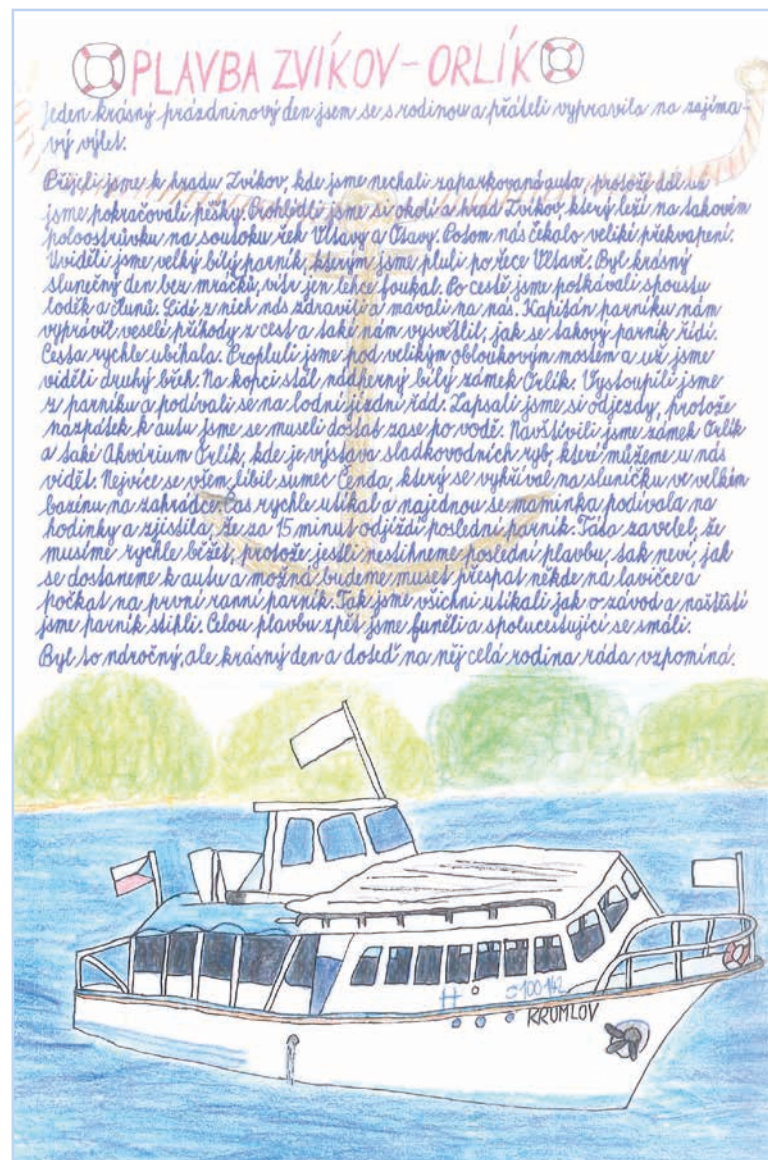 PLAVBA ZVÍKOV-ORLÍK
Jeden krásný prázdninový den jsem se s rodinou a přáteli vypravila na zajíma-
vý výlet.
Přijeli jsme k hradu Zvíkov, kde jsme nechali zaparkovaná auta, protože dál už
jsme pokračovali pěšky. Prohlédli jsme si okolí a hrad Zvíkov, který leží na takovém
poloostrůvku na soutoku řek Vltavy a Otavy. Potom nás čekalo veliké překvapení.
Uviděli jsme velký bílý parník, kterým jsme pluli po řece Vltavě. Byl krásný
slunečný den bez mráčků, vítr jen lehce foukal. Po cestě jsme potkávali spoustu
loděk a člunů. Lidé z nich nás zdravili a mávali na nás. Kapitán parníku nám
vyprávěl veselé příhody z cest a také nám vysvětlil, jak se takový parník řídí.
Cesta rychle ubíhala. Propluli jsme pod velikým obloukovým mostem a už jsme
viděli druhý břeh. Na kopci stál nádherný bílý zámek Orlík. Vystoupili jsme
z parníku a podívali se na lodní jízdní řád. Zapsali jsme si odjezdy, protože
nazpátek k autu jsme se museli dostat zase po vodě. Navštívili jsme zámek Orlík
a také Akvárium Orlík, kde je výstava sladkovodních ryb, které můžeme u nás
vidět. Nejvíce se všem líbil sumec Čenda, který se vyhříval na sluníčku ve velkém
bazénu na zahrádce. Čas rychle utíkal a najednou se maminka podívala na
hodinky a zjistila, že za 15 minut odjíždí poslední parník. Táta zavelel, že
musíme rychle běžet, protože jestli nestihneme poslední plavbu, tak neví, jak
se dostaneme k autu a možná budeme muset přespat někde na lavičce a
počkat na první ranní parník. Tak jsme všichni utíkali jak o závod a naštěstí
jsme parník stihli. Celou plavbu zpět jsme funěli a spolucestující se smáli.
Byl to náročný, ale krásný den a doteď na něj celá rodina ráda vzpomíná.
100142
KRUMLOV